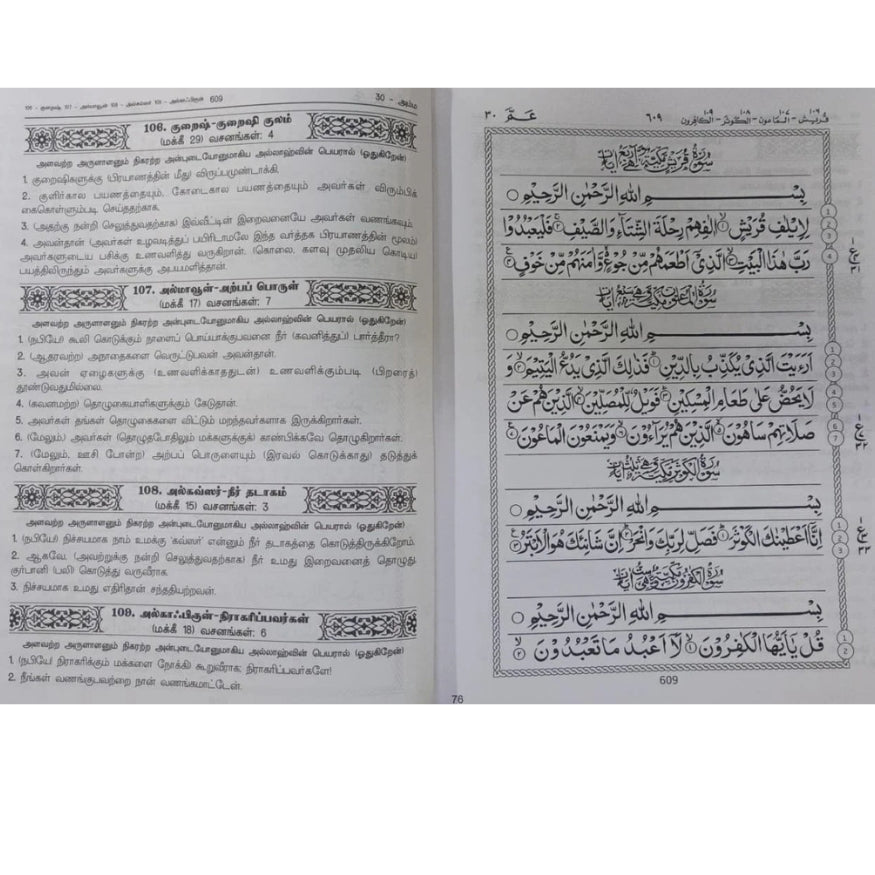 106 - குறைஷ் 107 - அல்மாவூன் 108 - அல்கவ்ஸர் 109 - அல்காஃபிரூன் 609 30 - அம்ம
106. குறைஷ்-குறைஷி குலம்
(மக்கீ 29) வசனங்கள்: 4
அளவற்ற அருளாளனும் நிகரற்ற அன்புடையோனுமாகிய அல்லாஹ்வின் பெயரால் (ஓதுகிறேன்)
1. குறைஷிகளுக்கு (பிரயாணத்தின் மீது) விருப்பமுண்டாக்கி,
2. குளிர்கால பயணத்தையும், கோடைகால பயணத்தையும் அவர்கள் விரும்பிக்
கைகொள்ளும்படி செய்ததற்காக,
3. (அதற்கு நன்றி செலுத்துவதற்காக) இவ்வீட்டின் இறைவனையே அவர்கள் வணங்கவும்.
4. அவன்தான் (அவர்கள் உழவடித்துப் பயிரிடாமலே இந்த வர்த்தக பிரயாணத்தின் மூலம்)
அவர்களுடைய பசிக்கு உணவளித்து வருகிறான். (கொலை, களவு முதலிய கொடிய)
பயத்திலிருந்தும் அவர்களுக்கு அபயமளித்தான்.
107. அல்மாவூன்-அற்பப் பொருள்
(மக்கீ 17) வசனங்கள்: 7
அளவற்ற அருளாளனும் நிகரற்ற அன்புடையோனுமாகிய அல்லாஹ்வின் பெயரால் (ஓதுகிறேன்)
1. (நபியே) கூலி கொடுக்கும் நாளைப் பொய்யாக்குபவனை நீர் (கவனித்துப்) பார்த்தீரா?
2. (ஆதரவற்ற) அநாதைகளை வெருட்டுபவன் அவன்தான்.
3. அவன் ஏழைகளுக்கு (உணவளிக்காததுடன்) உணவளிக்கும்படி (பிறரைத்)
தூண்டுவதுமில்லை.
4. (கவனமற்ற) தொழுகையாளிகளுக்கும் கேடுதான்.
5. அவர்கள் தங்கள் தொழுகைகளை விட்டும் மறந்தவர்களாக இருக்கிறார்கள்.
6. (மேலும்,) அவர்கள் (தொழுதபோதிலும் மக்களுக்குக்) காண்பிக்கவே தொழுகிறார்கள்.
7. (மேலும், ஊசி போன்ற) அற்பப் பொருளையும் (இரவல் கொடுக்காது) தடுத்துக்
கொள்கிறார்கள்.
108. அல்கவ்ஸர்-நீர் தடாகம்
(மக்கீ 15) வசனங்கள்: 3
அளவற்ற அருளாளனும் நிகரற்ற அன்புடையோனுமாகிய அல்லாஹ்வின் பெயரால் (ஓதுகிறேன்)
1. (நபியே) நிச்சயமாக நாம் உமக்கு 'கவ்ஸர்' என்னும் நீர் தடாகத்தை கொடுத்திருக்கிறோம்.
2. ஆகவே, (அவற்றுக்கு நன்றி செலுத்துவதற்காக) நீர் உமது இறைவனைத் தொழுது,
குர்பானி (பலி) கொடுத்து வருவீராக.
3. நிச்சயமாக உமது எதிரிதான் சந்ததியற்றவன்.
109. அல்காஃபிரூன்-நிராகரிப்பவர்கள்
(மக்கீ 18) வசனங்கள்: 6
அளவற்ற அருளாளனும் நிகரற்ற அன்புடையோனுமாகிய அல்லாஹ்வின் பெயரால் (ஓதுகிறேன்)
1. (நபியே) நிராகரிக்கும் மக்களை நோக்கி கூறுவீராக; நிராகரிப்பவர்களே!
2. நீங்கள் வணங்குபவற்றை நான் வணங்கமாட்டேன்.
76
١٠٦ قريش - ١٠٧ الماعون - ١٠٨ الكوثر - ١٠٩ الكافرون ٦٠٩ عم ٣٠
سورة قريش مكية وهي أربع آيات
بِسْمِ اللهِ الرَّحْمٰنِ الرَّحِيْمِ
لِاِيْلٰفِ قُرَيْشٍ ۙ١ اٖلٰفِهِمْ رِحْلَةَ الشِّتَآءِ وَالصَّيْفِ ۚ٢ فَلْيَعْبُدُوْا
رَبَّ هٰذَا الْبَيْتِ ۙ٣ الَّذِيْٓ اَطْعَمَهُمْ مِّنْ جُوْعٍ وَّاٰمَنَهُمْ مِّنْ خَوْفٍ ٤
سورة الماعون مكية وهي سبع آيات
بِسْمِ اللهِ الرَّحْمٰنِ الرَّحِيْمِ
اَرَءَيْتَ الَّذِيْ يُكَذِّبُ بِالدِّيْنِ ١ فَذٰلِكَ الَّذِيْ يَدُعُّ الْيَتِيْمَ ٢ وَ
لَا يَحُضُّ عَلٰى طَعَامِ الْمِسْكِيْنِ ٣ فَوَيْلٌ لِّلْمُصَلِّيْنَ ٤ الَّذِيْنَ هُمْ عَنْ
صَلَاتِهِمْ سَاهُوْنَ ٥ الَّذِيْنَ هُمْ يُرَآءُوْنَ ٦ وَيَمْنَعُوْنَ الْمَاعُوْنَ ٧
سورة الكوثر مكية وهي ثلث آيات
بِسْمِ اللهِ الرَّحْمٰنِ الرَّحِيْمِ
اِنَّآ اَعْطَيْنٰكَ الْكَوْثَرَ ١ فَصَلِّ لِرَبِّكَ وَانْحَرْ ٢ اِنَّ شَانِئَكَ هُوَ الْاَبْتَرُ ٣
سورة الكفرون مكية وهي ست آيات
بِسْمِ اللهِ الرَّحْمٰنِ الرَّحِيْمِ
قُلْ يٰٓاَيُّهَا الْكٰفِرُوْنَ ۙ١ لَآ اَعْبُدُ مَا تَعْبُدُوْنَ ۙ٢
609